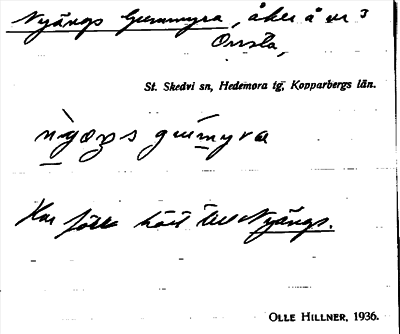 Nyängs Gummyra, åker å nr 3
Onsta,
St. Skedvi sn, Hedemora tg, Kopparbergs län.
Har förr hört till Nyängs.
OLLE HILLNER, 1936.